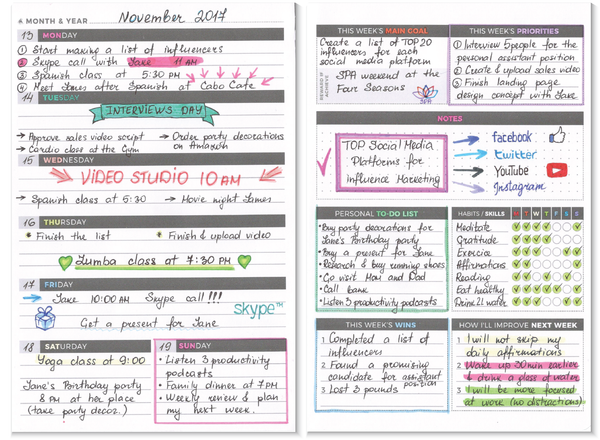 MONTH & YEAR November 2017
13 MONDAY
① Start making a list of influencers
② Skype call with Jake 11 AM
③ Spanish class at 5:30 PM
④ Meet James after Spanish at Cabo Cafe
14 TUESDAY
INTERVIEWS DAY
→ Approve sales video script → Order party decorations
→ Cardio class at the Gym on Amazon
15 WEDNESDAY
VIDEO STUDIO 10 AM
→ Spanish class at 5:30 → Movie night James
16 THURSDAY
* Finish the list * Finish & upload video
Zumba class at 7:30 PM
17 FRIDAY
→ Jake 10:00 AM Skype call !!!
skype™
Get a present for Jane
18 SATURDAY
Yoga class at 9:00
Jane's Birthday party
8 PM at her place
(take party decor.)
19 SUNDAY
• Listen 3 productivity
podcasts
• Family dinner at 7 PM
• Weekly review & plan
my next week.
THIS WEEK'S MAIN GOAL
Create a list of TOP 20
influencers for each
social media platform
REWARD IF ACHIEVE
SPA weekend at the
Four Seasons
SPA
THIS WEEK'S PRIORITIES
① Interview 5 people for the
personal assistant position
② Create & upload sales video
③ Finish landing page
design concept with Jake
NOTES
TOP Social Media
Platforms for
Influence Marketing
facebook
twitter
YouTube
Instagram
PERSONAL TO-DO LIST
• Buy party decorations for
Jane's Birthday party
• Buy a present for Jane
• Research & buy running shoes
• Go visit Mom and Dad
• Call bank
• Listen 3 productivity podcasts
HABITS / SKILLS M T W T F S S
Meditate
Gratitude
Exercise
Affirmations
Reading
Eat healthy
Drink 2L water
THIS WEEK'S WINS
1 Completed a list of
influencers
2 Found a promising
candidate for assistant
position
3 Lost 3 pounds
HOW I'LL IMPROVE NEXT WEEK
1 I will not skip my
daily affirmations
2 Wake up 30 min earlier
& drink a glass of water
3 I will be more focused
at work (no distractions)